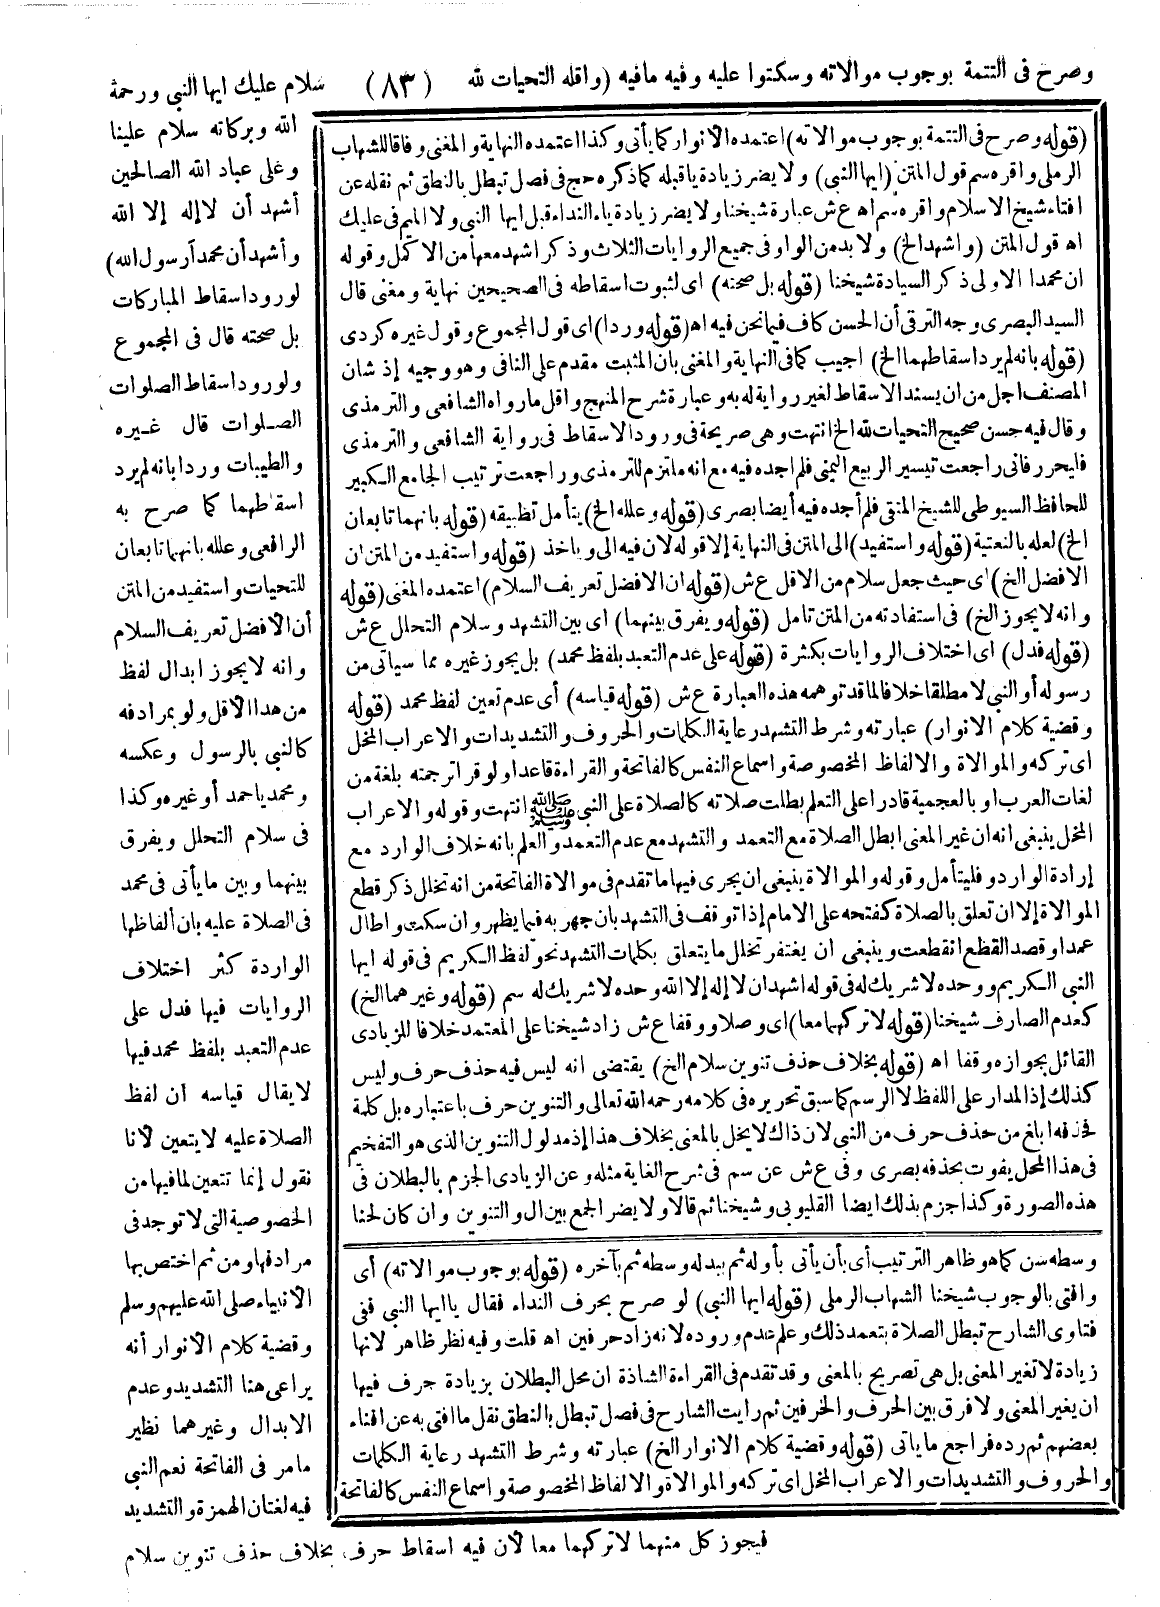 وصرح فى التتمة بوجوب موالاته وسكتوا عليه وفيه مافيه (واقله التحيات لله
(٨٣)
سلام عليك ايها النبي ورحمة
الله وبركاته سلام علينا
وعلى عباد الله الصالحين
أشهد أن لا إله إلا الله
وأشهد أن محمدا رسول الله)
لورود اسقاط المباركات
بل صحته قال فى المجموع
ولورود اسقاط الصلوات
الصلوات قال غيره
والطيبات وردا بانه لم يرد
اسقاطهما كما صرح به
الرافعى وعلله بانهما تابعان
للتحيات واستفيد من المتن
أن الأفضل تعريف السلام
وانه لا يجوز ابدال لفظ
من هذا الأقل ولو بمرادفه
كالنبي بالرسول وعكسه
ومحمد باحمد أو غيره وكذا
فى سلام التحلل ويفرق
بينهما وبين ما يأتى فى محمد
فى الصلاة عليه بان ألفاظها
الواردة كثر اختلاف
الروايات فيها فدل على
عدم التعبد بلفظ محمد فيها
لا يقال قياسه أن لفظ
الصلاة عليه لا يتعين لأنا
نقول إنما تتعين لما فيها من
الخصوصية التى لا توجد فى
مرادفها ومن ثم اختص بها
الأنبياء صلى الله عليهم وسلم
وقضية كلام الأنوار أنه
يراعى هنا التشديد وعدم
الابدال وغيرهما نظير
مامر فى الفاتحة نعم النبي
فيه لغتان الهمزة والتشديد
فيجوز كل منهما لا تركهما معا لأن فيه اسقاط حرف بخلاف حذف تنوين سلام
(قوله وصرح فى التتمة بوجوب موالاته) اعتمده الأنوار كما يأتى وكذا اعتمده النهاية والمغنى وفاقا للشهاب
الرملى واقره سم قول المتن (ايها النبي) ولا يضر زيادة يا قبله كما ذكره حج فى فصل تبطل بالنطق ثم نقله عن
افتاء شيخ الاسلام واقره سم اه ع ش عبارة شيخنا ولا يضر زيادة ياء النداء قبل ايها النبي ولا الميم فى عليك
اه قول المتن (واشهد الخ) ولا بد من الواو فى جميع الروايات الثلاث وذكر اشهد معها من الاكمل وقوله
ان محمدا الاولى ذكر السيادة شيخنا (قوله بل صحته) اى لثبوت اسقاطه فى الصحيحين نهاية ومغنى قال
السيد البصرى وجه الترقى أن الحسن كاف فيما نحن فيه اه (قوله وردا) اى قول المجموع وقول غيره كردى
(قوله بانه لم يرد اسقاطهما الخ) اجيب كما فى النهاية والمغنى بان المثبت مقدم على النافى وهو وجيه إذ شان
المصنف اجل من ان يسند الاسقاط لغير رواية له به وعبارة شرح المنهج واقل ما رواه الشافعى والترمذى
وقال فيه حسن صحيح التحيات لله الخ انتهت وهى صريحة فى ورود الاسقاط فى رواية الشافعى والترمذى
فليحرر فانى راجعت تيسير الربيع اليمنى فلم اجده فيه مع انه ملتزم للترمذى وراجعت ترتيب الجامع الكبير
للحافظ السيوطى للشيخ المتقى فلم أجده فيه أيضا بصرى (قوله وعلله الخ) يتأمل تطبيقه (قوله بانهما تابعان
الخ) لعله بالنعتية (قوله واستفيد) الى المتن فى النهاية إلا قوله لان فيه الى ويا خذ (قوله واستفيد من المتن ان
الافضل الخ) اى حيث جعل سلام من الاقل ع ش (قوله ان الافضل تعريف السلام) اعتمده المغنى (قوله
وانه لا يجوز الخ) فى استفادته من المتن تامل (قوله ويفرق بينهما) اى بين التشهد وسلام التحلل ع ش
(قوله فدل) اى اختلاف الروايات بكثرة (قوله على عدم التعبد بلفظ محمد) بل يجوز غيره مما سياتى من
رسوله أو النبي لا مطلقا خلافا لما قد توهمه هذه العبارة ع ش (قوله قياسه) أى عدم تعين لفظ محمد (قوله
وقضية كلام الانوار) عبارته وشرط التشهد رعاية الكلمات والحروف والتشديدات والاعراب المخل
اى تركه والموالاة والالفاظ المخصوصة واسماع النفس كالفاتحة والقراءة قاعدا ولو قرا ترجمته بلغة من
لغات العرب او بالعجمية قادرا على التعلم بطلت صلاته كالصلاة على النبي ﷺ انتهت وقوله والاعراب
المخل ينبغى انه ان غير المعنى ابطل الصلاة مع التعمد والتشهد مع عدم التعمد والعلم بانه خلاف الوارد مع
إرادة الوارد وفليتأمل وقوله والموالاة ينبغى ان يجرى فيها ما تقدم فى موالاة الفاتحة من انه تخلل ذكر قطع
الموالاة إلا ان تعلق بالصلاة كفتحه على الامام إذا توقف فى التشهد بان جهر به فيما يظهر وان سكت واطال
عمدا وقصد القطع انقطعت وينبغى ان يغتفر تخلل ما يتعلق بكلمات التشهد نحو لفظ الكريم فى قوله ايها
النبي الكريم ووحده لا شريك له فى قوله اشهد ان لا إله إلا الله وحده لا شريك له سم (قوله وغيرهما الخ)
كعدم الصارف شيخنا (قوله لا تركهما معا) اى وصلا ووقفا ع ش زاد شيخنا على المعتمد خلافا للزيادى
القائل بجوازه وقفا اه (قوله بخلاف حذف تنوين سلام الخ) يقتضى انه ليس فيه حذف حرف وليس
كذلك إذ المدار على اللفظ لا الرسم كما سبق تحريره فى كلامه رحمه الله تعالى والتنوين حرف باعتباره بل كلمة
فحذفه ابلغ من حذف حرف من النبي لان ذاك لا يخل بالمعنى بخلاف هذا إذ مدلول التنوين الذى هو التفخيم
فى هذا المحل يفوت بحذفه بصرى وفى ع ش عن سم فى شرح الغاية مثله وعن الزيادى الجزم بالبطلان فى
هذه الصورة وكذا جزم بذلك ايضا القليوبى وشيخنا ثم قالا ولا يضر الجمع بين ال والتنوين وان كان لحنا
وسطه سن كما هو ظاهر الترتيب أى بأن يأتى بأوله ثم ببدله وسطه ثم بآخره (قوله بوجوب موالاته) أى
وافتى بالوجوب شيخنا الشهاب الرملى (قوله ايها النبي) لو صرح بحرف النداء فقال يا ايها النبي ففى
فتاوى الشارح تبطل الصلاة بتعمد ذلك وعلم عدم وروده لانه زاد حرفين اه قلت وفيه نظر ظاهر لانها
زيادة لا تغير المعنى بل هى تصريح بالمعنى وقد تقدم فى القراءة الشاذة ان محل البطلان بزيادة حرف فيها
ان يغير المعنى ولا فرق بين الحرف والحرفين ثم رايت الشارح فى فصل تبطل بالنطق نقل ما افتى به عن افتاء
بعضهم ثم رده فراجع ما ياتى (قوله وقضية كلام الانوار الخ) عبارته وشرط التشهد رعاية الكلمات
والحروف والتشديدات والاعراب المخل اى تركه والموالاة والالفاظ المخصوصة واسماع النفس كالفاتحة